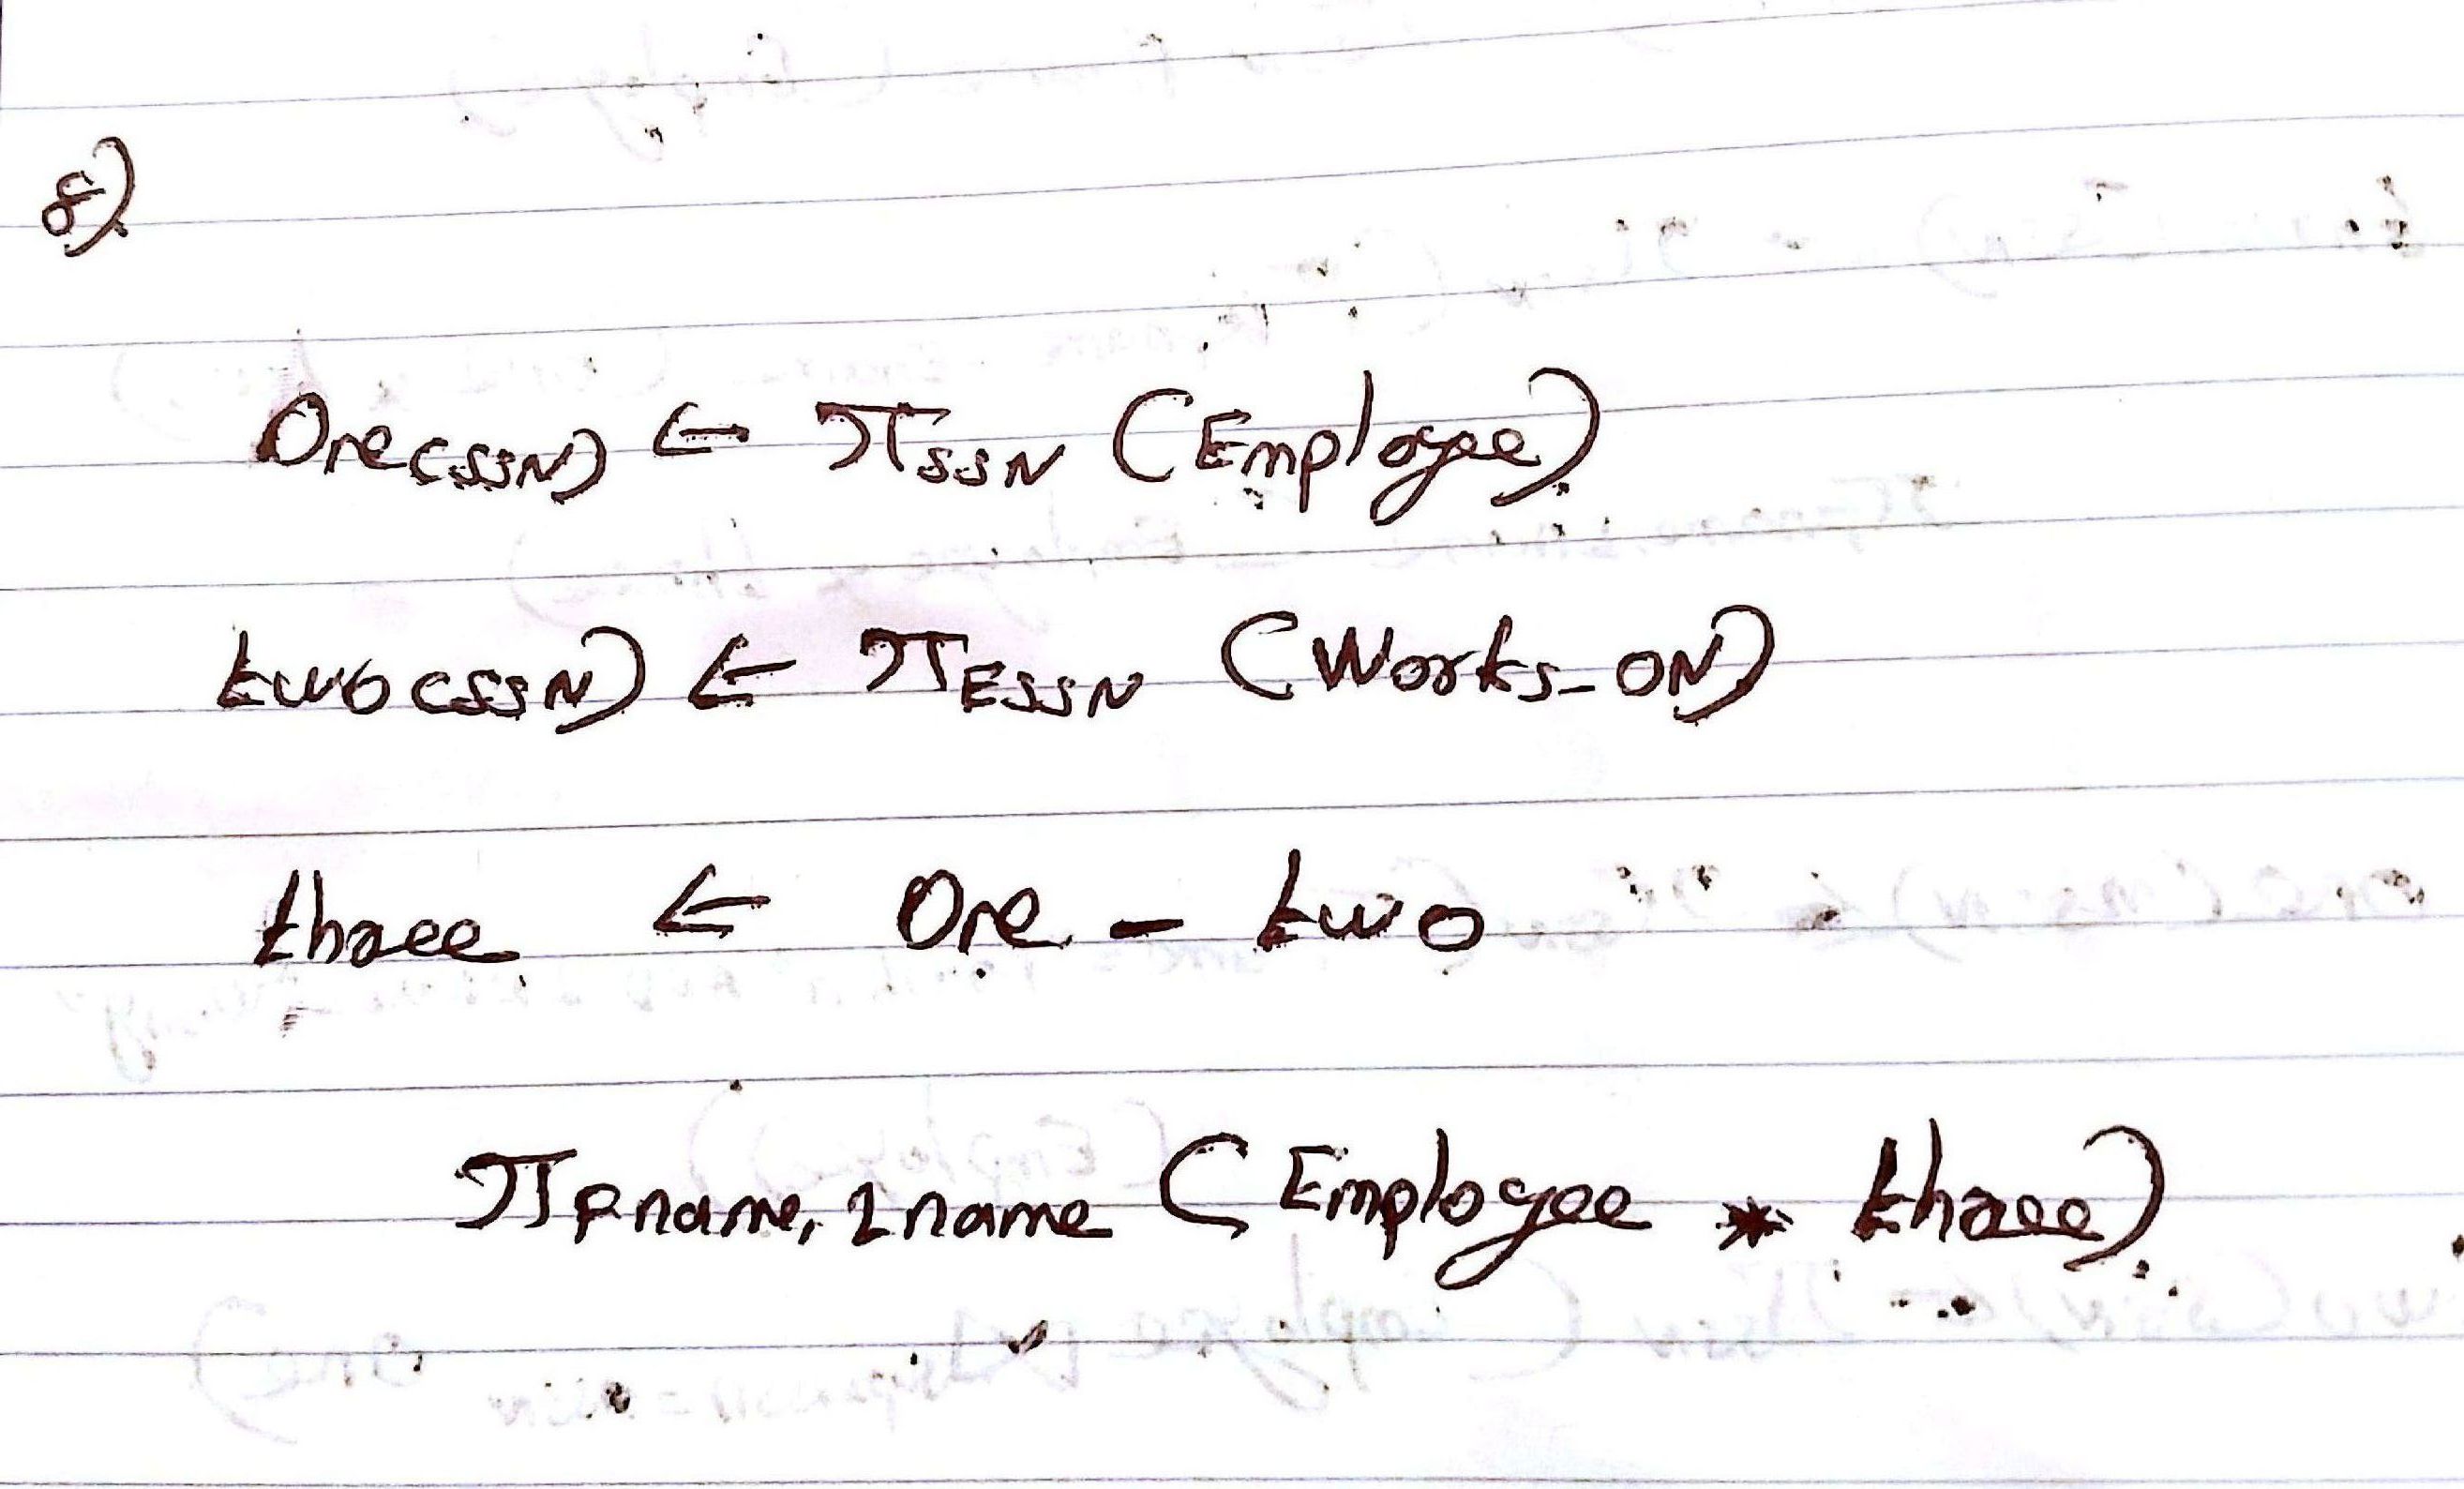 8)
One(SSN) ← π SSN (Employee)
two(SSN) ← π ESSN (Works_ON)
three ← One - two
π Fname, Lname (Employee * three)